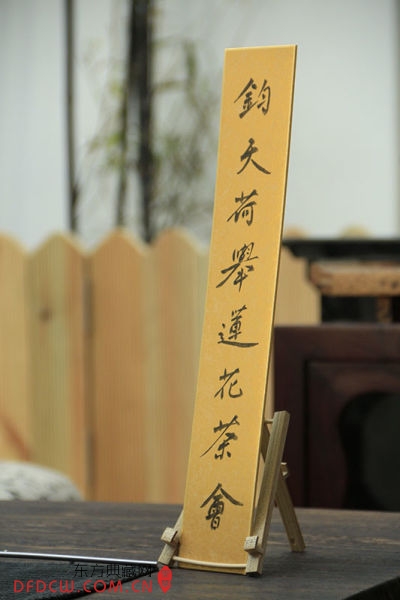 鈞天荷舉蓮花茶會
东方典藏网
DFDCW.COM.CN